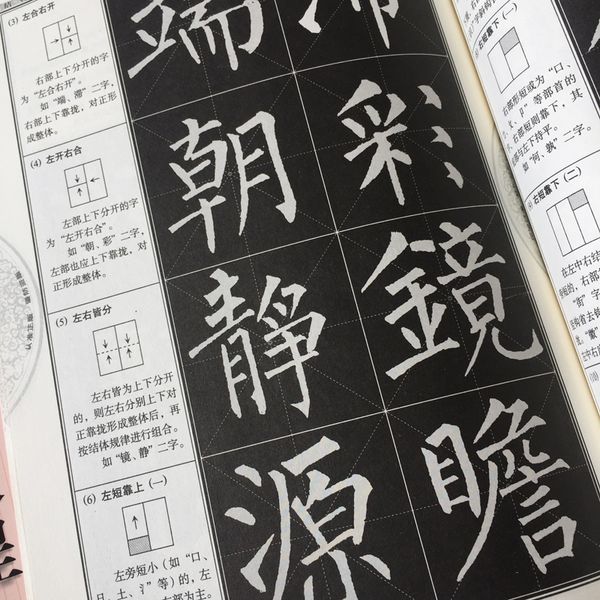 (3) 左合右开
右部上下分开的字
为“左合右开”。
如“端、滞”二字,
右部上下靠拢,对正形
成整体。
(4) 左开右合
左部上下分开的字
为“左开右合”。
如“朝、彩”二字,
左部也应上下靠拢,对
正形成整体。
(5) 左右皆分
左右皆为上下分开
的,则左右分别上下对
正靠拢形成整体后,再
按结体规律进行组合。
如“镜、静”二字。
(6) 左短靠上(一)
左旁短小(如“口、
日、土、氵”等)的,左
右部为主。
端 滞
朝 彩
静 鏡
源 瞻
右短靠下(一)
右部形短或为“口、
阝”等部首的
右部短则靠下,其
部与左下持平。
如“河、敦”二字。
右短靠下(二)
在左中右结
短的,右部
“街”字